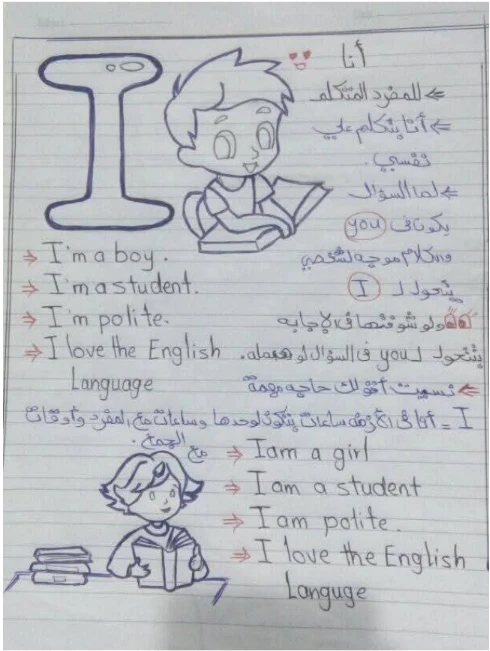 I
أنا
للمفرد المتكلم
أنا بتكلم علي
نفسي.
لما السؤال
يكون في you
والكلام موجه لشخصي
يتحول لـ I
ولو شوفتها في الإجابه
يتحول لـ you في السؤال لو هعمله.
نسيت أقولك حاجه مهمة
I = أنا في الأزمنه ساعات بتكون لوحدها وساعات مع المفرد وأوقات
مع الجمع.
I'm a boy.
I'm a student.
I'm polite.
I love the English
Language
I am a girl
I am a student
I am polite.
I love the English
Languge